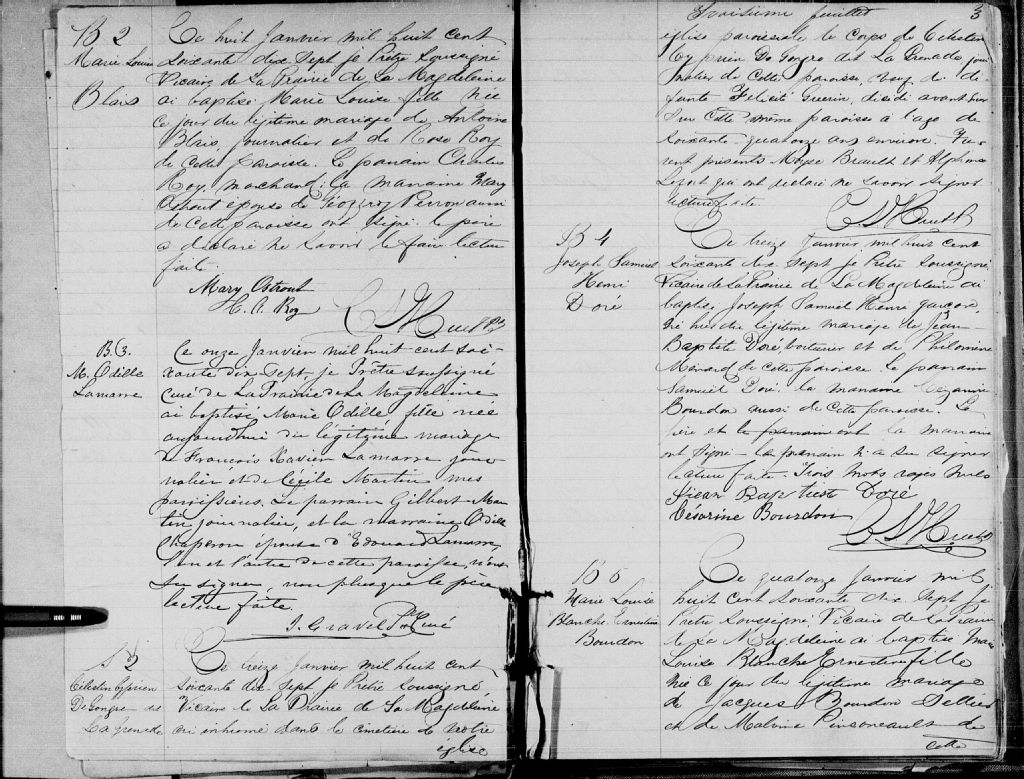 B 2
Marie Louise
Blais
Ce huit Janvier mil huit cent
soixante dix sept je Prêtre soussigné
Vicaire de La Prairie de La Magdeleine
ai baptisé Marie Louise fille née
ce jour du légitime mariage de Antoine
Blais journalier et de Rose Roy
de cette paroisse. Le parain Charles
Roy, marchand; la maraine Mary
Ostrout épouse de Perron aussi
de cette paroisse ont signé. le père
a déclaré ne savoir le faire lecture
faite
Mary Ostrout
H. A. Roy
B. 3.
M. Odille
Lamarre
Ce onze Janvier mil huit cent soi-
xante dix Sept, je Prêtre soussigné
Curé de La Prairie de La Magdeleine
ai baptisé Marie Odille fille née
aujourdhui du légitime mariage
de François Xavier Lamarre jour-
nalier et de Cécile Martin mes
paroissiens. Le parrain Gilbert Mar-
tin journalier, et la marraine Odille
Chaperon épouse d'Edouard Lamarre,
l'un et l'autre de cette paroisse, n'ont
su signer, non plus que le père
lecture faite.
J. Gravel Ptre Curé
S 2
Célestin Cyprien
De Gongre dit
La Grenade
Ce treize Janvier mil huit cent
soixante dix sept je Prêtre soussigné,
Vicaire de La Prairie de La Magdeleine
ai inhumé dans le cimetière de notre
église
Troisième feuillet
3
église paroissiale le corps de Célestin
Cyprien De Gongre dit La Grenade jour
nalier de cette paroisse, de dé-
funte Félicité Guerin, décédé avant hier
sur cette même paroisse à l'age de
soixante quatorze ans environ. Fu-
rent présents Moyse Breault et Alphonse
qui ont déclaré ne savoir signer
lecture faite.
B 4
Joseph Samuel
Henri
Doré
Ce treize Janvier mil huit cent
soixante dix sept je Prêtre soussigné,
Vicaire de La Prairie de La Magdeleine ai
baptisé Joseph Samuel Henri garçon,
né hier du légitime mariage de Jean
Baptiste Doré, voiturier et de Philomène
Ménard de cette paroisse. Le parain
Samuel Doré. la maraine Cézarine
Bourdon aussi de cette paroisse. Le
père et le parain ont la maraine
ont signé le parain n'a su signer
lecture faite. Trois mots rayés nuls
Jean Baptiste Doré
Cesarine Bourdon
B 5
Marie Louise
Blanche Ernestine
Bourdon
Ce quatorze Janvier mil
huit cent soixante dix sept je
Prêtre soussigné, Vicaire de La Prairie
de La Magdeleine ai baptisé Marie
Louise Blanche Ernestine fille
née ce jour du légitime mariage
de Jacques Bourdon Sellier
et de Malvine Pinsoneault de
cette